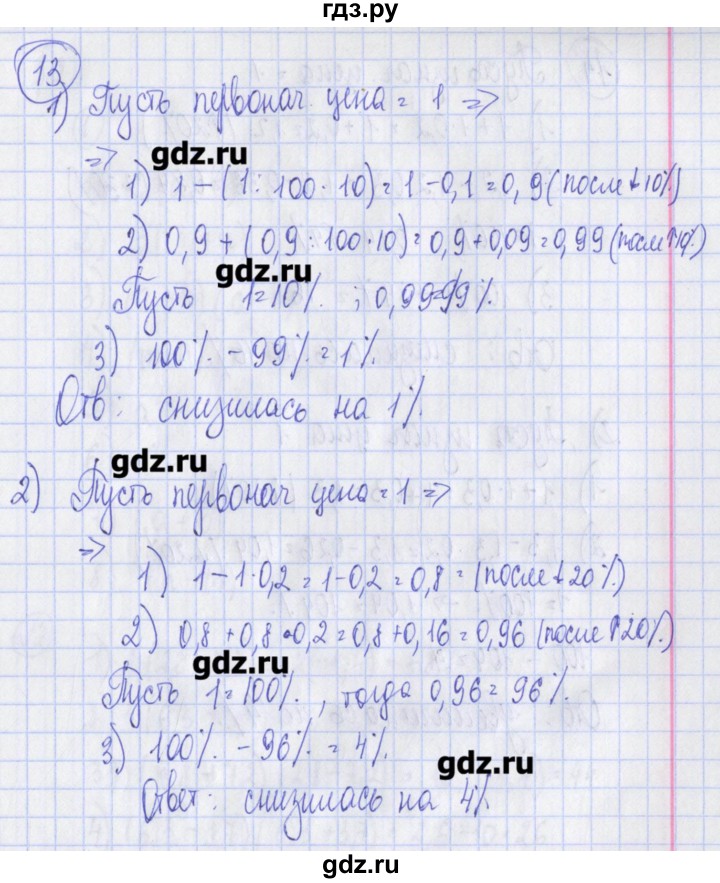 гдз.ру
13
1) Пусть первонач. цена = 1 =>
=>
gdz.ru
1) 1 - (1 : 100 · 10) = 1 - 0,1 = 0,9 (после ↓ 10%)
2) 0,9 + (0,9 : 100 · 10) = 0,9 + 0,09 = 0,99 (посл ↑ 10%)
gdz.ru
Пусть 1 = 10% ; 0,99 = 99%.
3) 100% - 99% = 1%.
Отв: снизилась на 1%.
gdz.ru
2) Пусть первонач цена = 1 =>
=>
1) 1 - 1 · 0,2 = 1 - 0,2 = 0,8 = (после ↓ 20%)
2) 0,8 + 0,8 · 0,2 = 0,8 + 0,16 = 0,96 (после ↑ 20%)
gdz.ru
Пусть 1 = 100%, тогда 0,96 = 96%.
3) 100% - 96% = 4%.
gdz.ru
Ответ: снизилась на 4%.
gdz.ru